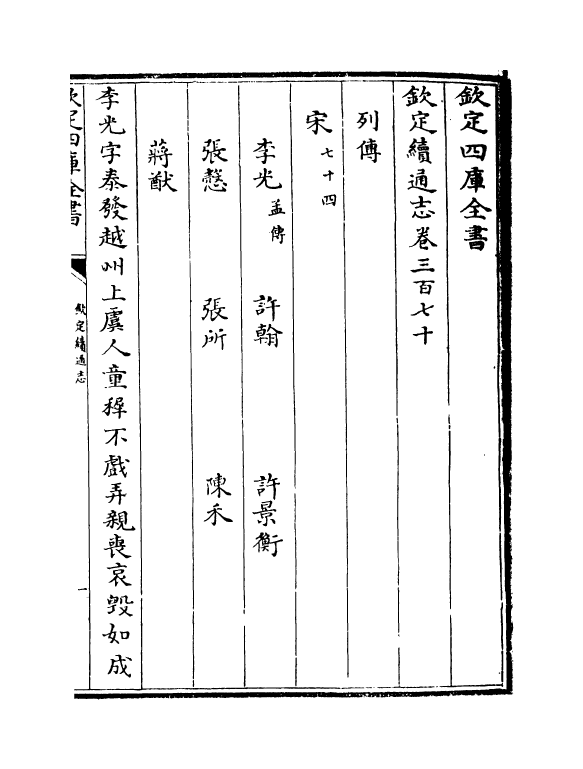 欽定四庫全書
欽定續通志卷三百七十
列傳
宋七十四
李光孟傳 許翰 許景衡
張慤 張所 陳禾
蔣猷
李光字泰發越州上虞人童穉不戲弄親喪哀毁如成
欽定四庫全書
欽定續通志
一